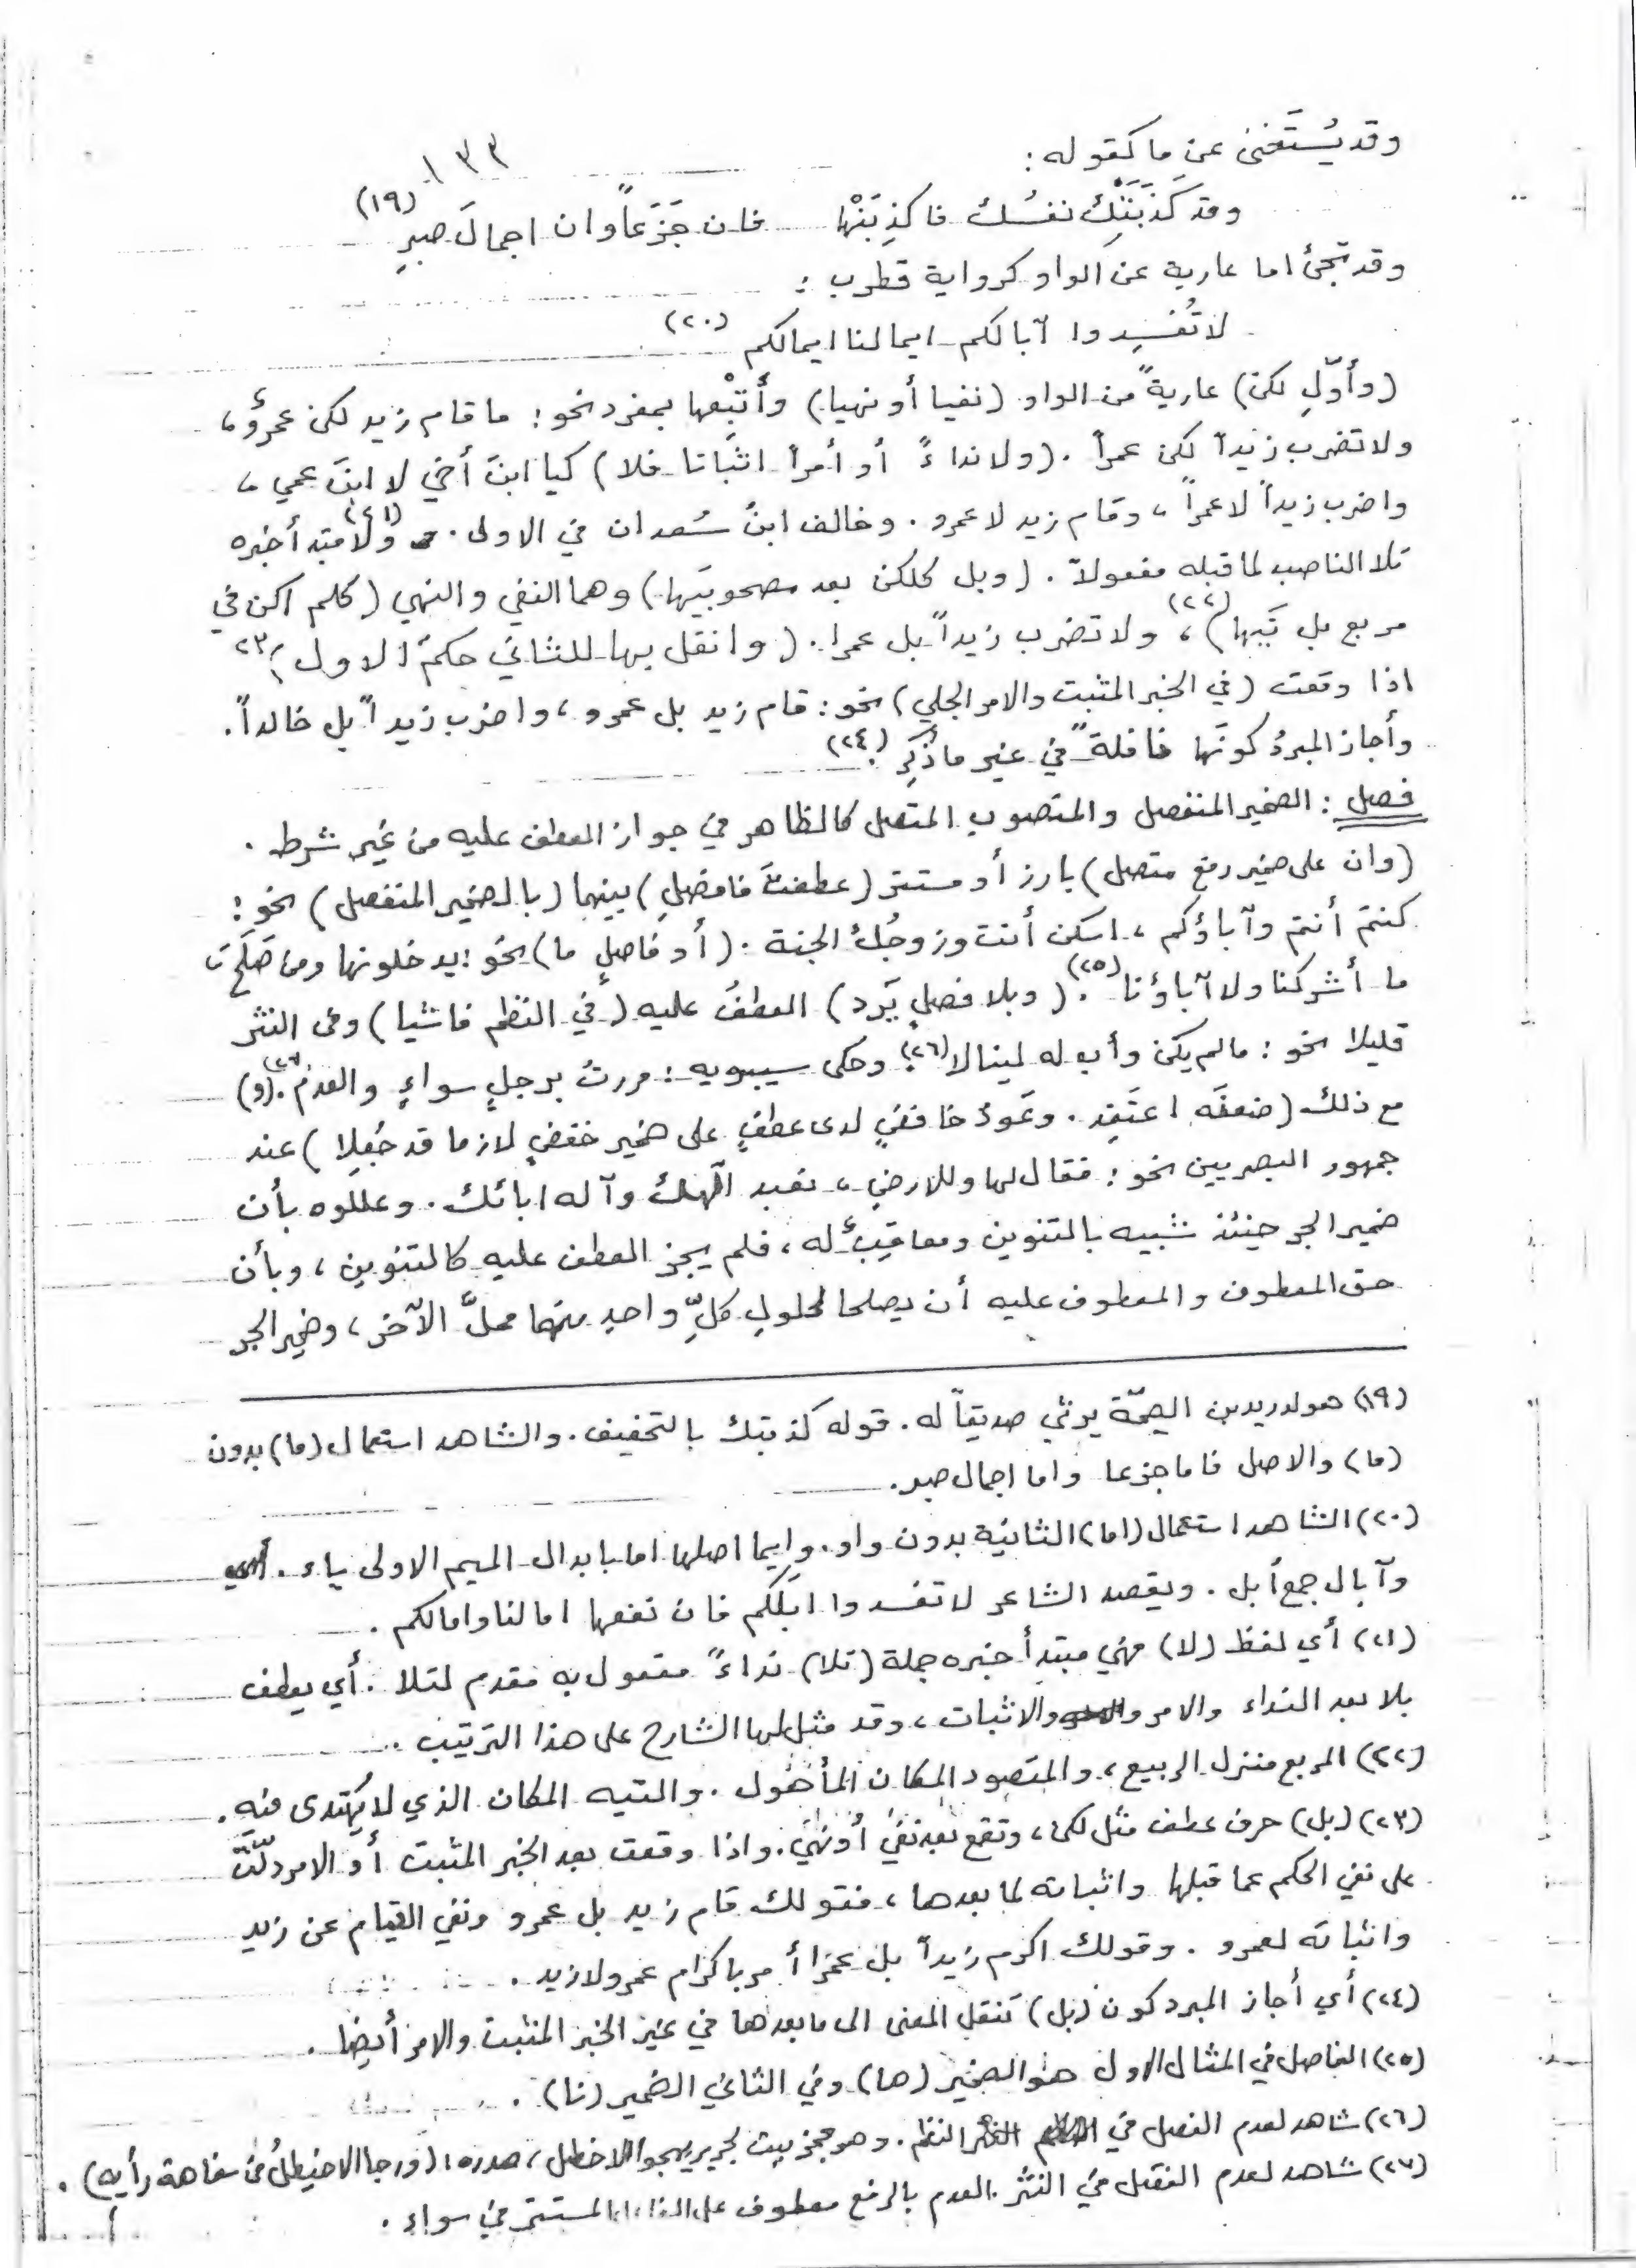 ١٣٣
وقد يُستَغنى عن ما كقوله :
وقد كَذَبَتْكَ نفسُك فاكذِبَنْها فان جَزَعاً وان اجمالَ صبرِ (١٩)
وقد تجئ اما عارية عن الواو كرواية قطرب :
لا تُفسِدوا آبالكم ايما لنا ايمالكم (٢٠)
(وأوّلِ لكن) عاريةً من الواو (نفيا أو نهيا) وأَتْبِعها بمفرد نحو : ما قام زيد لكن عمروٌ ،
ولا تضرب زيداً لكن عمراً . (ولا نداءً أو أمراً اثباتا تلا) كيا ابنَ أخي لا ابنَ عمي ،
واضرب زيداً لا عمراً ، وقام زيد لا عمرو . وخالف ابنُ سُعدان في الاولى . ولا (٢١) مبتدأ خبره
تلا الناصب لما قبله مفعولاً . (وبل كلكن بعد مصحوبَيها) وهما النفي والنهي (كلم اكن في
مربع بل تَيها) (٢٢) ، ولا تضرب زيداً بل عمرا . (وانقل بها للثاني حكمَ الاول) ٢٣
اذا وقعت (في الخبر المثبت والامر الجلي) نحو : قام زيد بل عمرو ، واضرب زيداً بل خالداً .
وأجاز المبردُ كونَها ناقلةً في غير ما ذُكِر . (٢٤)
فصل : الضمير المنفصل والمنصوب المتصل كالظاهر في جواز العطف عليه من غير شرط .
(وان على ضمير رفع متصل) بارز أو مستتر (عطفتَ فافصلِ) بينهما (بالضمير المنفصل) نحو :
كنتم أنتم وآباؤكم ، اسكن أنت وزوجُك الجنة . (أو فاصلٍ ما) نحو : يدخلونها ومن صَلَحَ ،
ما أشركنا ولا آباؤنا (٢٥) . (وبلا فصلٍ يَرد) العطفُ عليه (في النظم فاشيا) وفى النثر
قليلا نحو : ما لم يكن وأب له لينالا (٢٦) . وحكى سيبويه : مررت برجلٍ سواءٍ والعدمُ (٢٧) . (و)
مع ذلك (ضعفَه اعتَقِد . وعَودُ خافضٍ لدى عطفٍ على ضمير خفضٍ لازما قد جُعِلا) عند
جمهور البصريين نحو : فقال لها وللارضِ ، نعبد الهك وآله ابائك . وعللوه بأن
ضمير الجر حينئذ شبيه بالتنوين ومعاقِبٌ له ، فلم يجز العطف عليه كالتنوين ، وبأن
حق المعطوف والمعطوف عليه أن يصلحا لحلولِ كلِّ واحدٍ منهما محلَّ الآخر ، وضمير الجر
(١٩) هو لدريد بن الصمّة يرثي صديقاً له . قوله كذبتك بالتخفيف . والشاهد استعمال (ما) بدون
(ما) والاصل فاما جزعا واما اجمال صبر .
(٢٠) الشاهد استعمال (اما) الثانية بدون واو . وإيما اصلها اما بابدال الميم الاولى ياء .
وآبال جمع أبل . ويقصد الشاعر لا تفسدوا ابلكم فان نفعها اما لنا واما لكم .
(٢١) أي لفظ (لا) فهي مبتدأ خبره جملة (تلا) نداءً مفعول به مقدم لتلا . أي يعطف
بلا بعد النداء والامر والاثبات ، وقد مثل لها الشارح على هذا الترتيب .
(٢٢) المربع منزل الربيع ، والمقصود المكان المأهول . والتيه المكان الذي لا يُهتدى فيه .
(٢٣) (بل) حرف عطف مثل لكن ، وتقع بعد نفي أو نهي . واذا وقعت بعد الخبر المثبت أو الامر دلّت
على نفي الحكم عما قبلها واثباته لما بعدها ، فقولك قام زيد بل عمرو ونفي القيام عن زيد
واثباته لعمرو . وقولك اكرم زيداً بل عمرا أمر باكرام عمرو لا زيد .
(٢٤) أي أجاز المبرد كون (بل) تنقل المعنى الى ما بعدها في غير الخبر المثبت والامر أيضا .
(٢٥) الفاصل في المثال الاول هو الضمير (ها) وفي الثاني الضمير (نا) .
(٢٦) شاهد لعدم الفصل في النظم . وهو عجز بيت لجرير يهجو الاخطل ، صدره : (ورجا الاخيطلُ من سفاهة رأيه) .
(٢٧) شاهد لعدم الفصل في النثر . العدم بالرفع معطوف على المستتر في سواء .